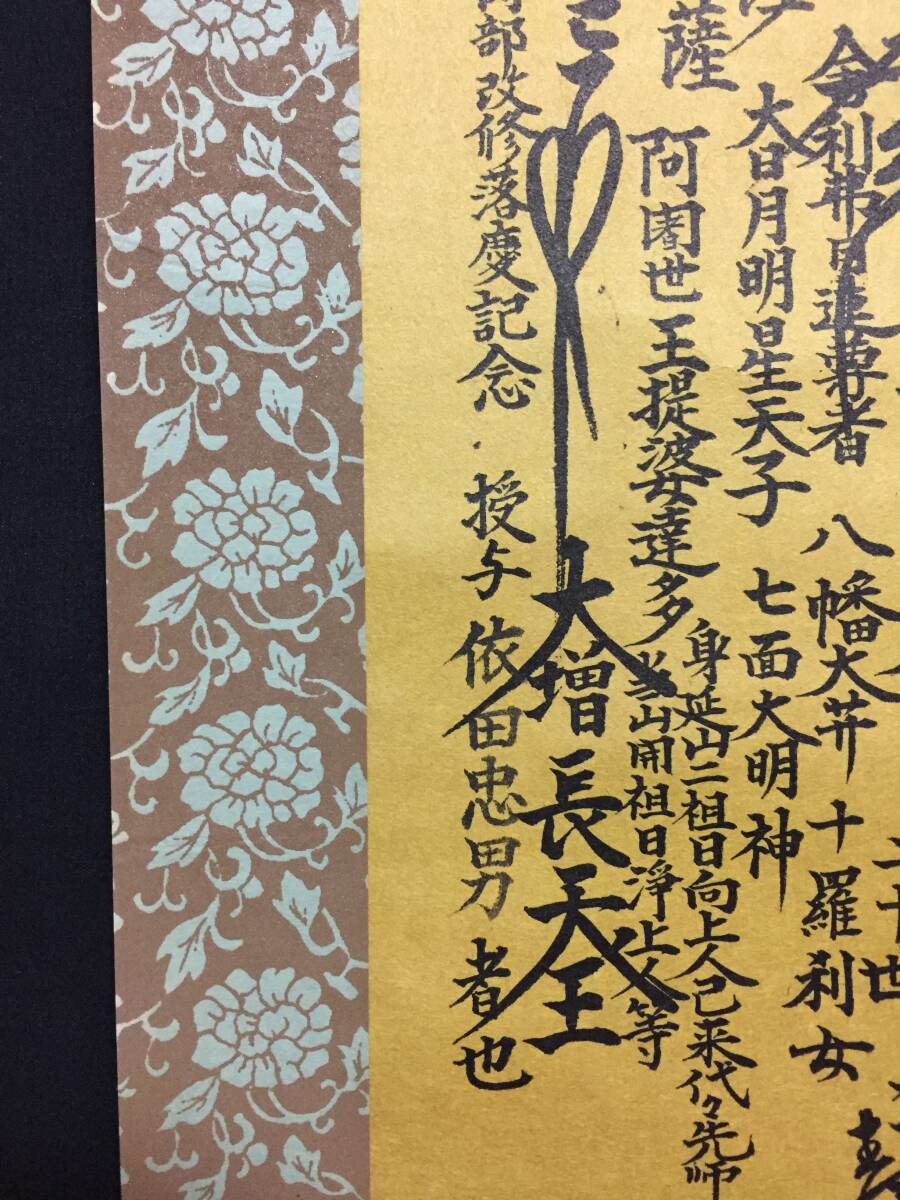 二十世
舎利弗目連尊者 八幡大井 十羅刹女
大日月明星天子 七面大明神
薩 阿闍世王提婆達多
身延山二祖日向上人已来代々先師
当山開祖日浄上人等
大増長天王
部改修落慶記念 授与 依田忠男 者也